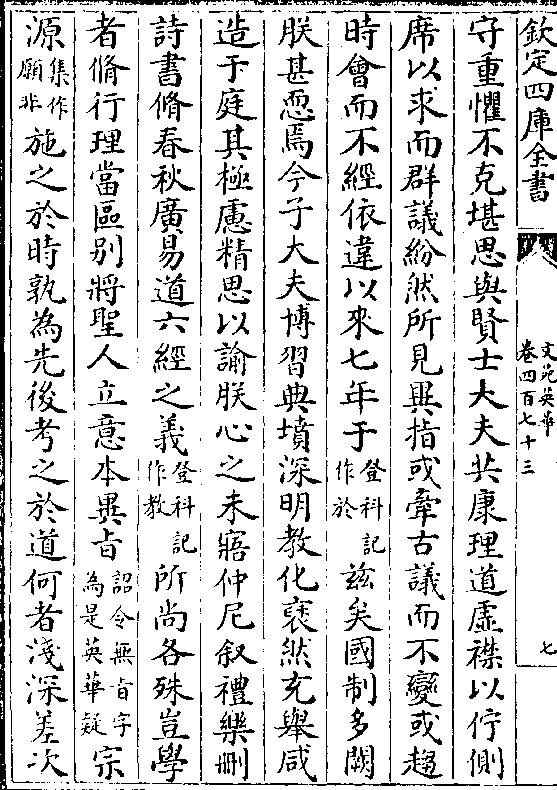 欽定四庫全書
文苑英華
卷四百七十三
七
守重懼不克堪思與賢士大夫共康理道虛襟以佇側
席以求而群議紛然所見異指或牽古議而不變或趨
時會而不經依違以來七年于登科記作於兹矣國制多闕
朕甚恧焉今子大夫博習典墳深明教化褎然充舉咸
造于庭其極慮精思以諭朕心之未寤仲尼叙禮樂刪
詩書脩春秋廣易道六經之義登科記作教所尚各殊豈學
者脩行理當區别將聖人立意本異㫖詔令無㫖字為是英華疑宗
源集作願非施之於時孰為先後考之於道何者淺深差次